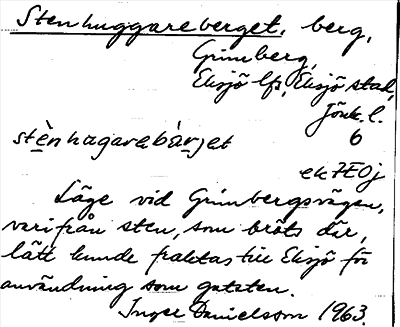 Stenhuggareberget, berg,
Grimberg,
Eksjö lfs, Eksjö stad,
Jönk. l.
stènhagarebàrjet 6
ek 7E0j
Läge vid Grimbergsvägen,
varifrån sten, som bröts där,
lätt kunde fraktas till Eksjö för
användning som gatsten.
Inger Danielsson 1963.